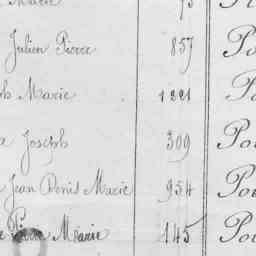 Marie 73
Julien Pierre 857 Po
Marie 1221 Po
Joseph 309 Po
Jean Denis Marie 954 Po
Pierre Marie 145 Po